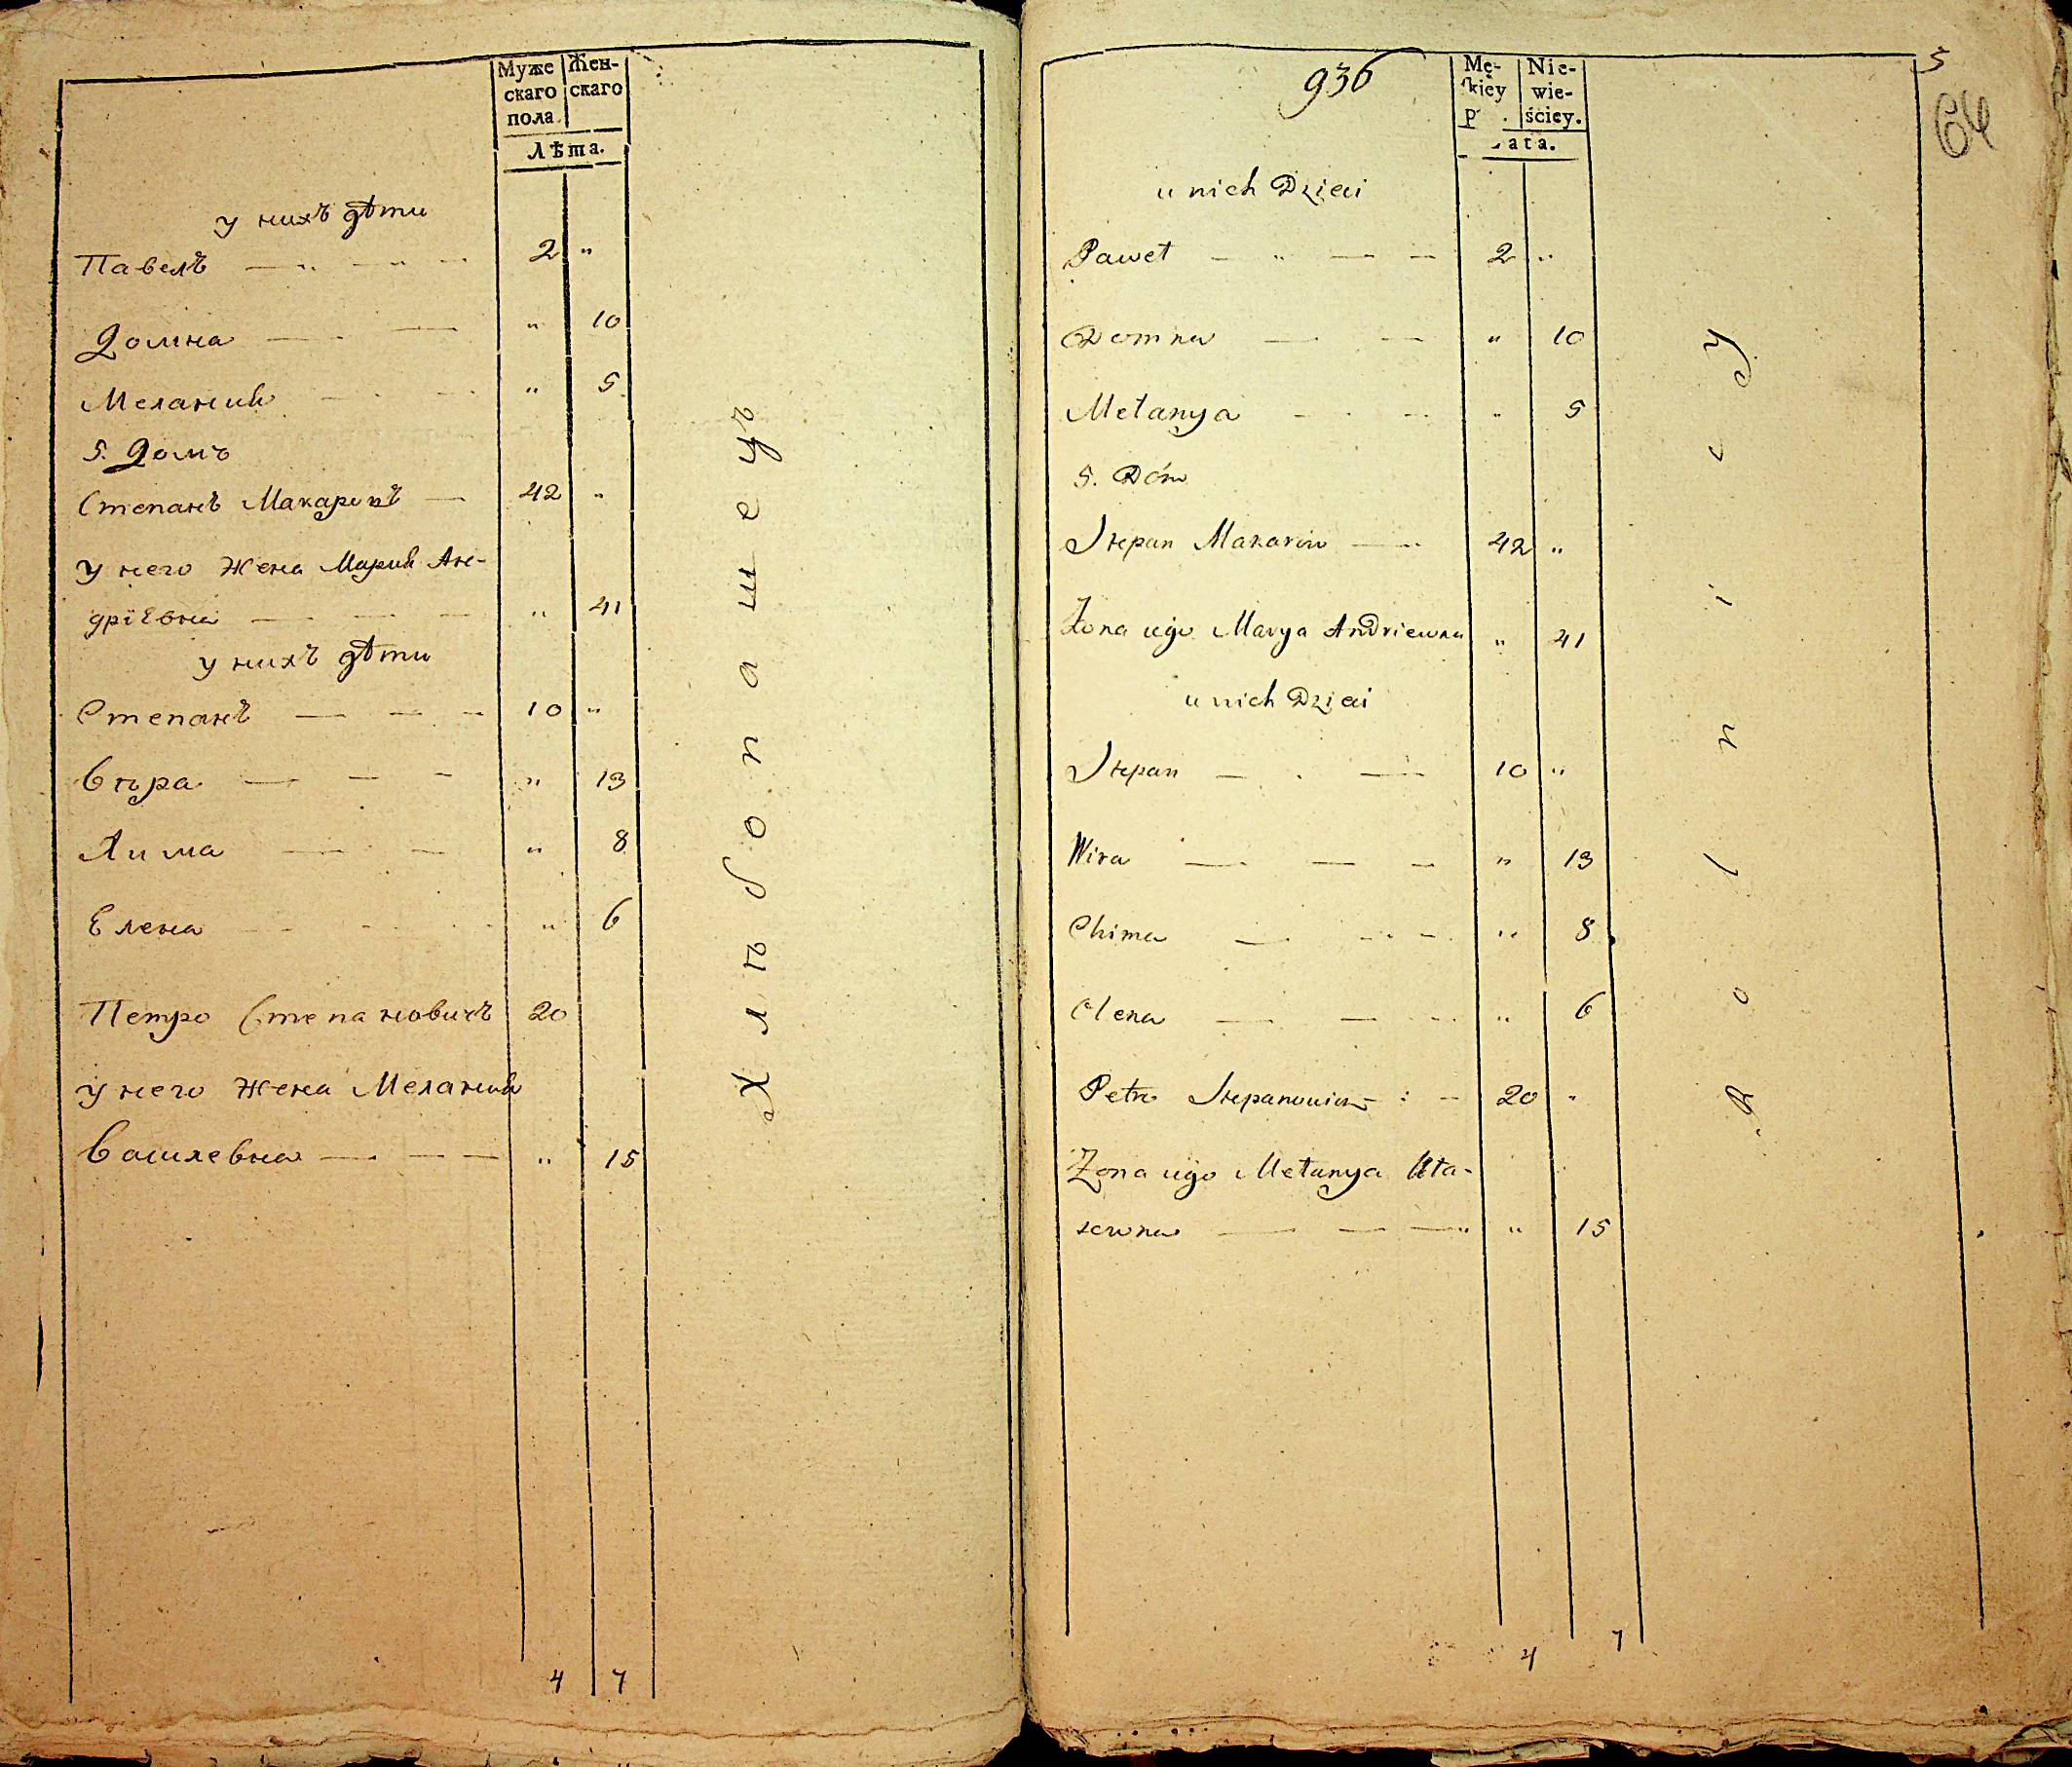 Муже
скаго
пола.
Жен-
скаго
Лѣта.
у нихъ дѣти
Павелъ 2 "
Домна " 10
Мелания " 5
5. Домъ
Степанъ Макаровъ 42 "
у него Жена Мария Ан-
дріевна " 41
у нихъ дѣти
Степанъ 10 "
Вѣра " 13
Хима " 8
Елена " 6
Петро Степановичъ 20
у него Жена Мелания
Василевна " 15
4 7
Хлѣбопашецъ
936
5
64
Mę-
kiey
p .
Nie-
wie-
ściey.
ata.
u nich Dzieci
Paweł 2 "
Domna " 10
Mełanya " 5
5. Dóm
Stepan Makarów 42 "
Żona iego Marya Andriewna " 41
u nich Dzieci
Stepan 10 "
Wira " 13
Chima " 8
Olena " 6
Petro Stepanowicz 20 "
Żona iego Mełanya
" 15
4 7
Rolnicy